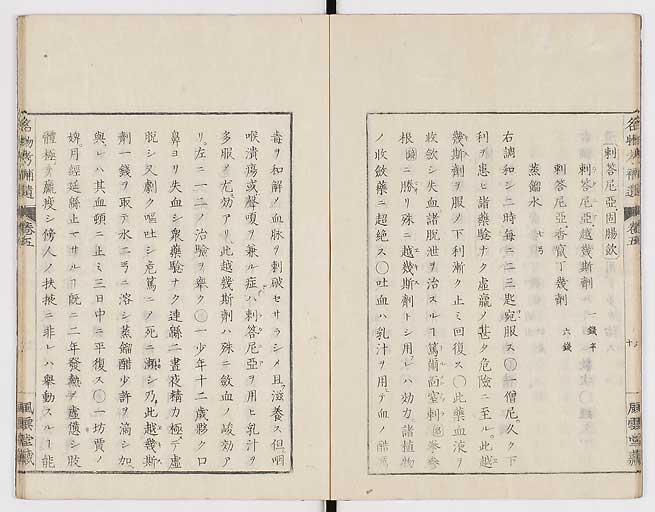 名物考補遺 卷五
風雲堂藏
剌答尼亞固腸飲
剌答尼亞越幾斯劑 一錢半
剌答尼亞香竄丁幾劑 六錢
蒸餾水 七弓
右調和シ二時每ニ二三匙宛服ス〇一僧尼久ク下
利ヲ患ヒ諸藥驗ナク虛羸ノ甚ク危險ニ至ル此越
幾斯劑ヲ服ノ下利漸ク止ミ回復ス〇此藥血液ヲ
收斂シ失血諸脫泄ヲ治スルヿ篤爾面室剌
根ニ勝リ殊ニ越幾斯劑トシ用レハ効力諸植物
ノ收斂藥ニ超絕ス〇吐血ハ乳汁ヲ用テ血ノ酷
毒ヲ和解ノ血脉ヲ刺破セサラシメ且滋養ス但咽
喉潰瘍或聲嗄ヲ兼ル症ハ剌答尼亞ヲ用ヒ乳汁ヲ
多服ノ尤効アリ此越幾斯劑ハ殊ニ斂血ノ峻効ア
リ左ニ一二ノ治驗ヲ舉ク〇一少年十二歲夥ク口
鼻ヨリ失血シ衆藥驗ナク連緜二晝夜精力極テ虛
脫シ又劇ク嘔吐シ危篤ニノ死ニ瀕シ乃此越幾斯
劑一錢ヲ取テ水二弓ニ溶シ蒸餾醋少許ヲ滴シ加
與レハ其血頓ニ止ミ三日中ニ平復ス〇一坊賈ノ
婢月經延緜止マサルヿ既ニ二年發熱虛憊シ肢
體極テ羸瘦シ傍人ノ扶掖ニ非レハ舉動スルヿ能
名物考補遺 卷五
風雲堂藏